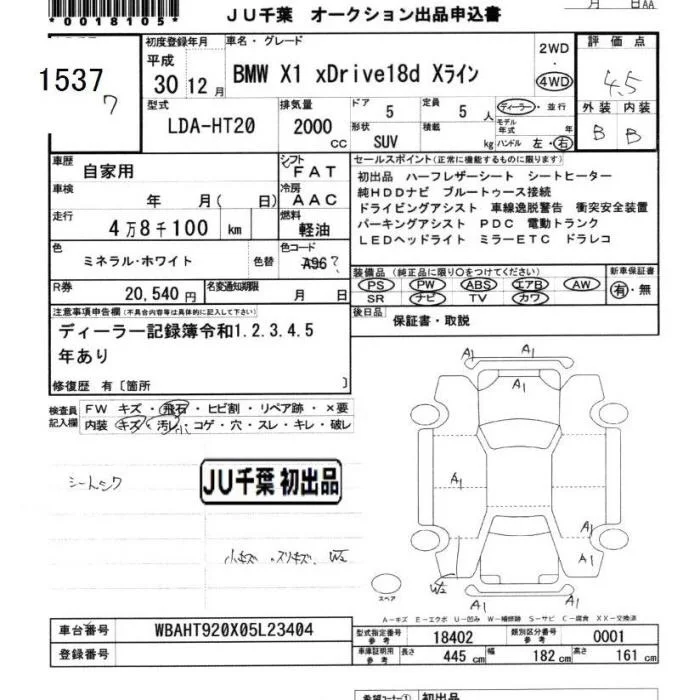 *0018105*
月 日AA
JU千葉 オークション出品申込書
1537
7
初度登録年月
平成
30 12月
車名・グレード
BMW X1 xDrive18d Xライン
2WD
・
4WD
評価点
4.5
外装 内装
B B
型式
LDA-HT20
排気量
2000
CC
ドア
5
定員
5 人
形状
SUV
積載
kg
ディーラー・並行
モデル年式 年
ハンドル 左・右
車歴
自家用
シフト
FAT
車検
年 月( 日)
冷房
AAC
走行
4万8千100 km
燃料
軽油
色
ミネラル・ホワイト
色替
色コード
A96?
R券
20,540円
名変通知期限
月 日
セールスポイント(正常に機能するものに限ります)
初出品 ハーフレザーシート シートヒーター
純HDDナビ ブルートゥース接続
ドライビングアシスト 車線逸脱警告 衝突安全装置
パーキングアシスト PDC 電動トランク
LEDヘッドライト ミラーETC ドラレコ
装備品(純正品に限り○をつけてください)
PS PW ABS エアB AW
SR ナビ TV カワ
新車保証書
有・無
後日品
保証書・取説
注意事項申告欄(不具合内容等は具体的に記入して下さい)
ディーラー記録簿令和1.2.3.4.5
年あり
修復歴 有〔箇所 〕
検査員
記入欄
FW キズ・飛石・ヒビ割・リペア跡・×要
内装 キズ・汚レ・コゲ・穴・スレ・キレ・破レ
小
シートシワ
JU千葉 初出品
小キズ スリキズ W2
A1
A1
A1
A1
A1
A1
W2
A1
A1
スペア
A-キズ E-エクボ U-凹み W-補修跡 S-サビ C-腐食 XX-交換済
車台番号
WBAHT920X05L23404
登録番号
型式指定番号
参考
18402
類別区分番号
参考
0001
車庫証明用
参考
長さ
445 cm
幅
182 cm
高さ
161 cm
希望コーナー①
初出品